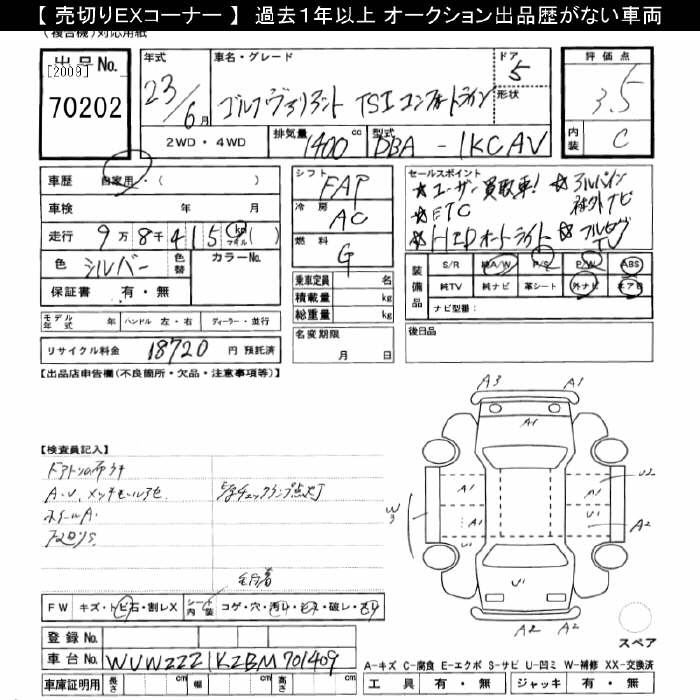 【 売切りEXコーナー 】 過去１年以上 オークション出品歴がない車両
(複合機)対応用紙
出品No.
[2009]
70202
年式 23/6月
車名・グレード
ゴルフヴァリアント TSIコンフォートライン
ドア 5
形状
評価点
3.5
内装 C
2WD・4WD 排気量 1400cc 型式 DBA - 1KCAV
車歴 自家用・( )
車検 年 月
走行 9万8千415 km マイル ( )
色 シルバー 色替 カラーNo.
保証書 有・無
モデル年式 年 ハンドル 左・右 ディーラー・並行
リサイクル料金 18720 円 預託済
シフト FAT
冷房 AC
燃料 G
乗車定員 名
積載量 kg
総重量 kg
名変期限
月 日
セールスポイント
★ユーザー買取車! ☆アルパイン
★ETC 社外ナビ
★HIDオートライト ★フルセグTV
装備品 S/R 純A/W P/S P/W ABS
純TV 純ナビ 革シート 外ナビ エアB
ナビ型番：
後日品
【出品店申告欄(不良箇所・欠品・注意事項等)】
【検査員記入】
A・U、
ホイールA.
チェックランプ点灯
FW キズ・トビ石・割レX シート内装 コゲ・穴・汚レ・
破レ・
登録No.
車台No. WVWZZZ1KZBM701409
車庫証明用 長さ cm 幅 cm 高さ cm
A3 A1
A1
A1 A1 U2
W3
A1 U1 A2
U1
A2 A2
スペア
A-キズ C-腐食 E-エクボ S-サビ U-凹ミ W-補修 XX-交換済
工具 有・無 ジャッキ 有・無